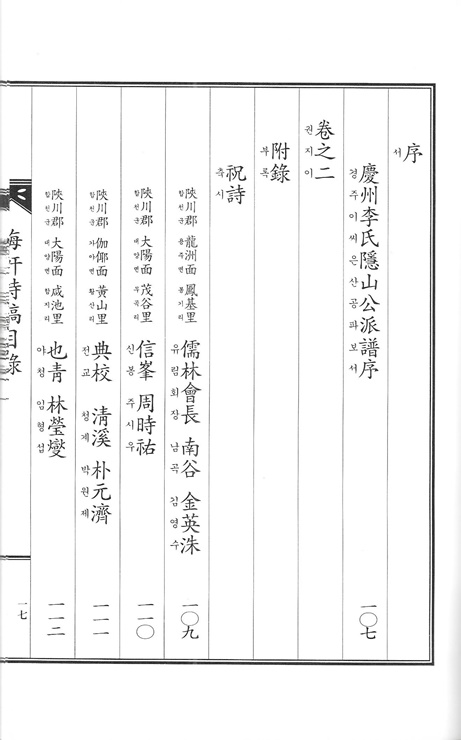 序
서
慶州李氏隱山公派譜序 一〇七
경주이씨은산공파보서
卷之二
권지이
附錄
부록
祝詩
축시
陜川郡 龍洲面 鳳基里 儒林會長 南谷 金英洙 一〇九
합천군 용주면 봉기리 유림회장 남곡 김영수
陜川郡 大陽面 茂谷里 信峯 周時祐 一一〇
합천군 대양면 무곡리 신봉 주시우
陜川郡 伽倻面 黃山里 典校 淸溪 朴元濟 一一一
합천군 가야면 황산리 전교 청계 박원제
陜川郡 大陽面 咸池里 也靑 林瑩燮 一一二
합천군 대양면 함지리 야청 임형섭
詩稿目錄
一七